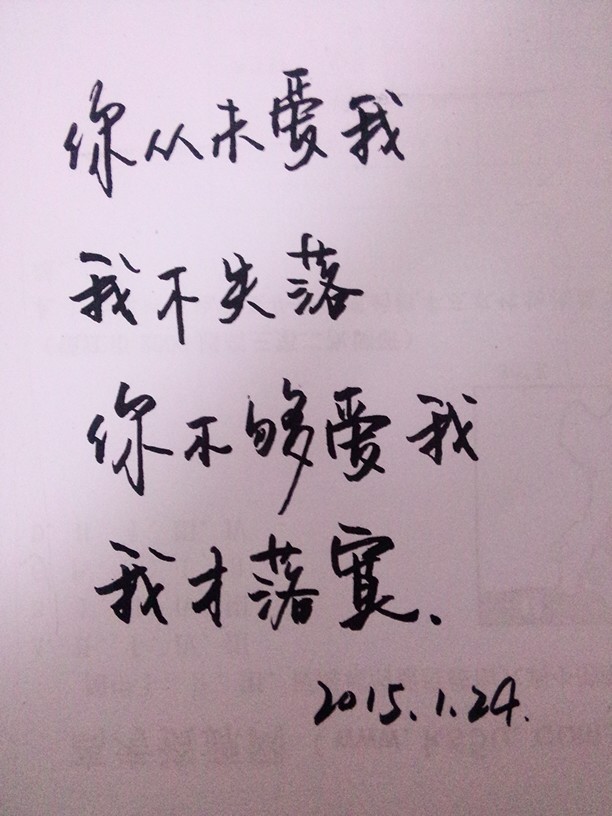 你从未爱我
我不失落
你不够爱我
我才落寞.
2015.1.24.